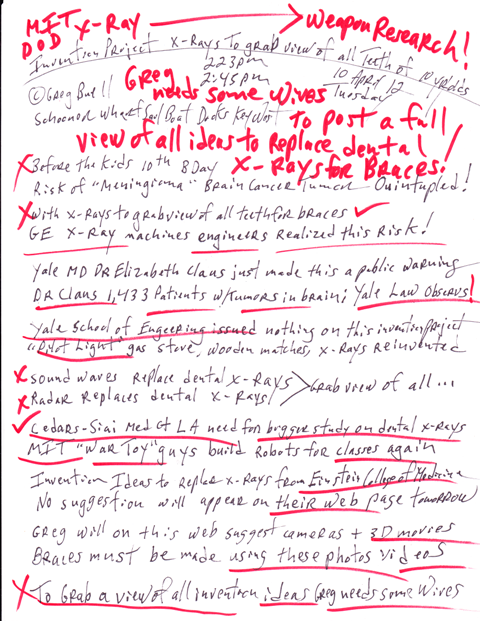 MIT X-Ray → Weapon Research!
DOD
Invention Project X-Rays To grab view of all Teeth of 10 yr olds
2:23pm
2:45pm
10 April 12
Tuesday
© Greg Buell
Greg needs some Wives
Schooner Wharf Sail Boat Docks Key West
To post a full
view of all ideas to Replace dental
X-Rays for Braces!
X Before the kids 10th B Day
Risk of "Meningioma" Brain Cancer Tumor Quintupled!
X With X-Rays to grab view of all teeth for braces ✓
GE X-Ray machines engineers Realized this Risk!
Yale MD DR Elizabeth Claus just made this a public warning
DR Claus 1,433 Patients w/Tumors in brain; Yale Law Observs!
Yale School of Engeering issued nothing on this invention project
"Pilot Light" gas stove, wooden matches, X-Rays Reinvented
X Sound waves Replace dental X-Rays
X Radar Replaces dental X-Rays
> Grab view of all ...
✓ Cedars-Siai Med Ct LA need for bigger study on dental X-Rays
MIT "War Toy" guys build Robots for classes again
Invention Ideas to Replce X-Rays from Einstein College of Medicine
No suggestion will appear on their web page tomorrow
Greg will on this web suggest cameras + 3D movies
Braces must be made using these photos videos
X To Grab a view of all invention ideas Greg needs some Wives